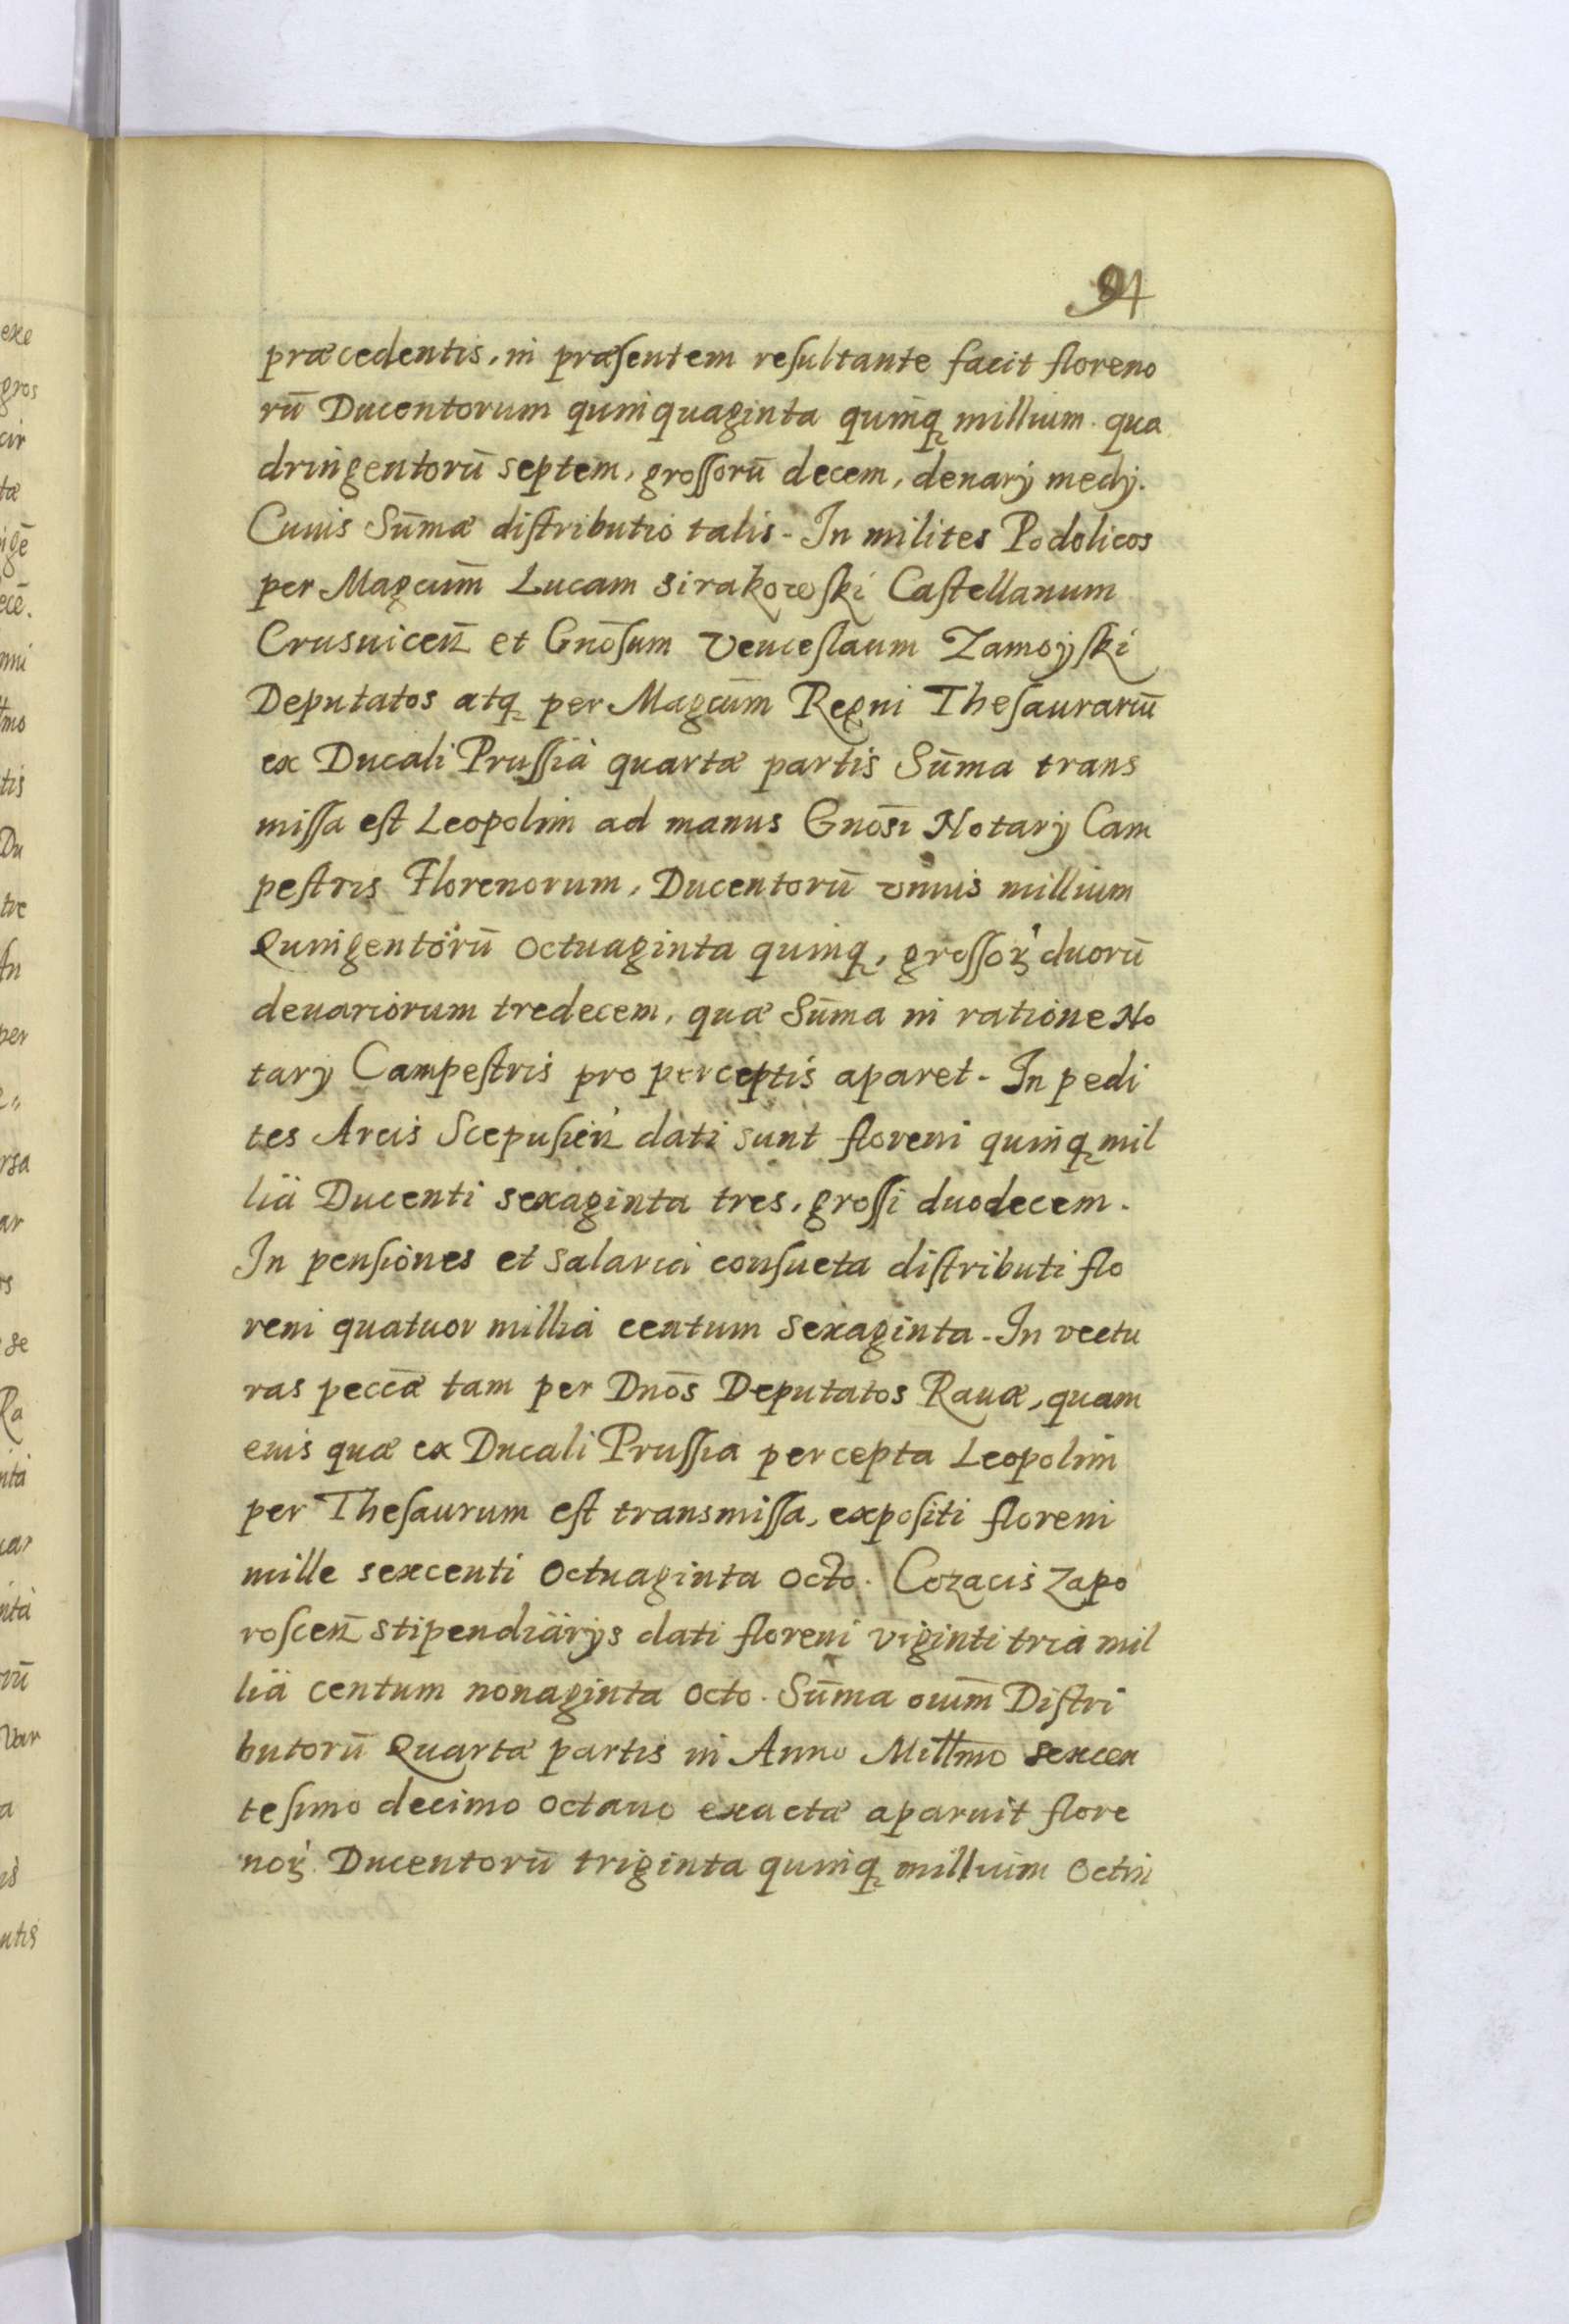 præcedentis, in præsentem resultante facit floreno
rū Ducentorum quinquaginta quinq̨ millium qua
dringentorū septem, grossorū decem, denarÿ medÿ.
Cuius Sūmæ distributio talis - In milites Podolicos
per Magcūm Lucam Sirakowski Castellanum
Crusuiceñ et Gnōsum Venceslaum Zamoÿski
Deputatos atq̨ per Magcūm Regni Thesaurariū
ex Ducali Prussia quartæ partis Sūma trans
missa est Leopolim ad manus Gnōsi Notarÿ Cam
pestris Florenorum, Ducentorū vnius millium
Quingentorū octuaginta quinq̨, grossoꝝ duorū
denariorum tredecem, quæ Sūma in ratione No
tarÿ Campestris pro perceptis aparet - In pedi
tes Arcis Scepusieñ dati sunt floreni quinq̨ mil
lia Ducenti sexaginta tres, grossi duodecem.
In pensiones et salaria consueta distributi flo
reni quatuor millia centum sexaginta - In vectu
ras peccǣ tam per Dnōs Deputatos Rauæ, quam
eius quæ ex Ducali Prussia percepta Leopolim
per Thesaurum est transmissa, expositi floreni
mille sexcenti octuaginta octo. Cozacis Zapo
rosceñ stipendiarÿs dati floreni viginti tria mil
lia centum nonaginta octo. Sūma oium̄ Distri
butorū Quartæ partis in Anno Millmō sexcen
tesimo decimo octauo exactæ aparuit flore
noꝝ Ducentorū triginta quinq̨ millium Octin